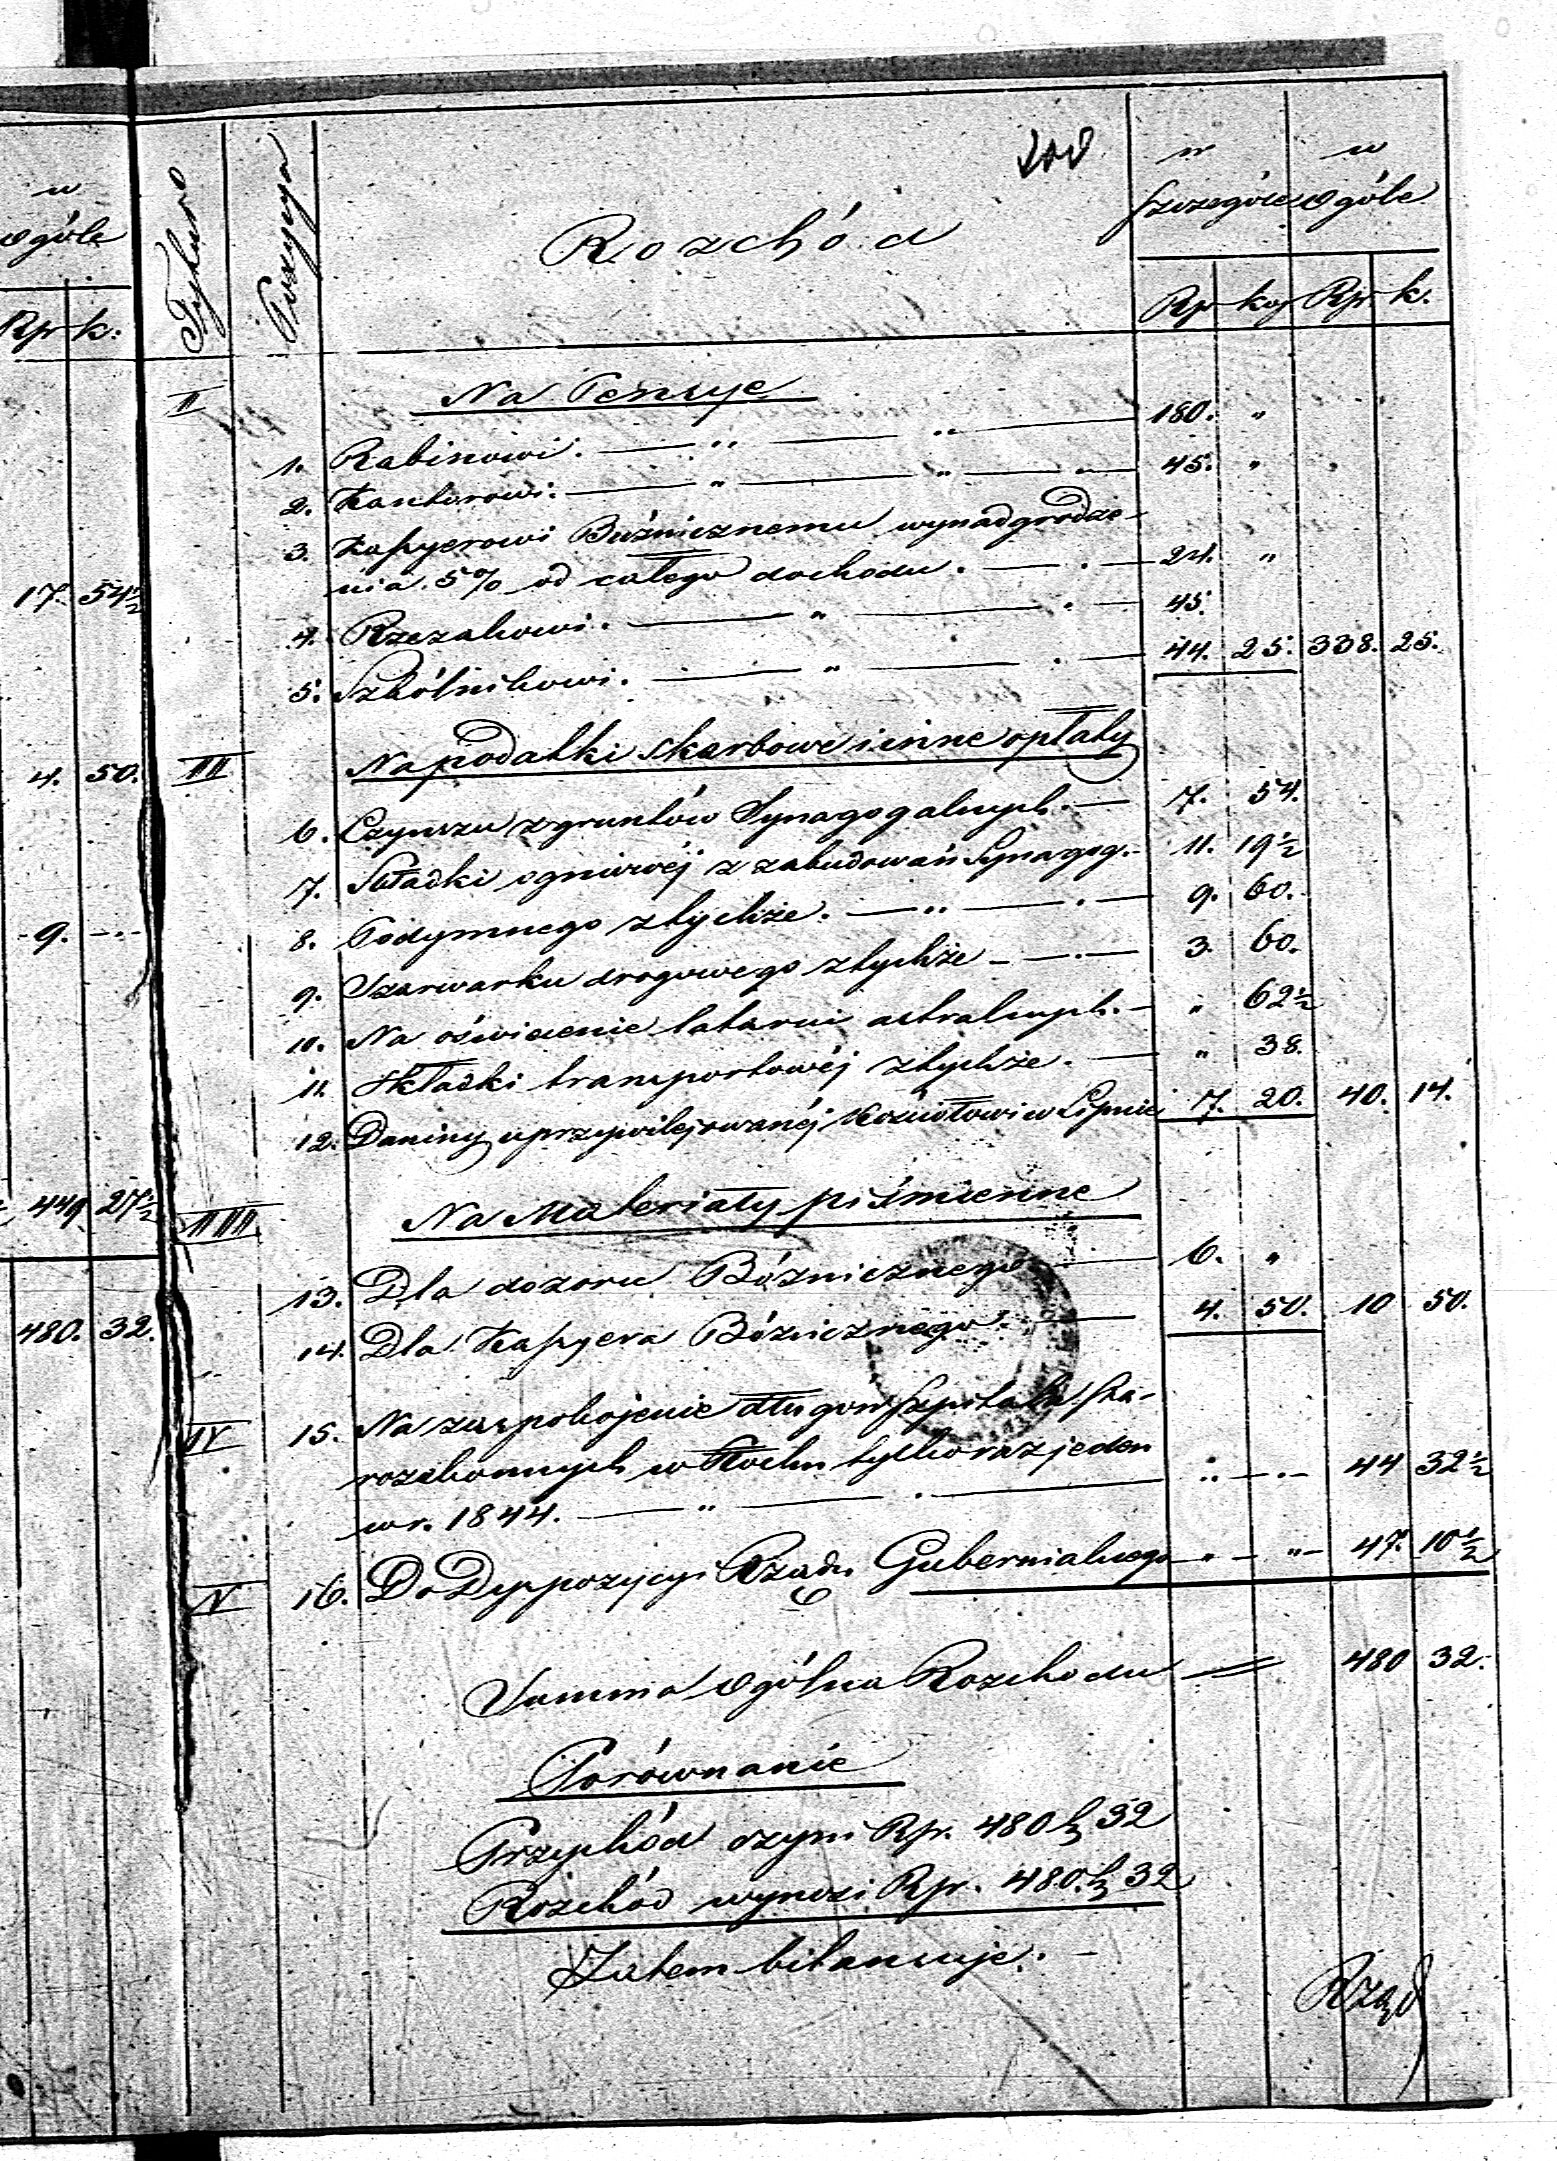 w
ogóle
Rp k:
17. 54½
4. 50.
9.
449 27½
480. 32.
Tytuł
Pozycya
Rozchód
w szczególe
w ogóle
Rp kop Rp k.
II Na Pensye
1. Rabinowi. — " — " — 180. "
2. Kantorowi. — " — " — " 45. "
3. Kassyerowi Bużnicznemu wynadgrodze-
nia 5% od całego dochodu. — . — 24. "
4. Rzezakowi. — " — . — 45.
5. Szkólnikowi. — " — . — 44. 25. 338. 25.
III Na podatki skarbowe i inne opłaty
6. Czynszu z gruntów Synagogalnych. — 7. 54.
7. Składki ogniowéj z zabudowań Synagog. - 11. 19½
8. Podymnego z tychże. — " — . — 9. 60.
9. Szarwarku drogowego z tychże — . — 3. 60.
10. Na oświecenie latarni astralnych. — " 62½
11. Składki transportowéj z tychże. — " 38.
12. Daniny uprzywilejowanéj Kościołowi w Lipnie 7. 20. 40. 14.
IIII Na Materiały piśmienne
13. Dla dozoru Bóżnicznego — 6. "
14. Dla Kassyera Bóżnicznego. — 4. 50. 10 50.
IV 15. Na zaspokojenie długow Szpitala Sta-
rozakonnych w Płocku tylko raz jeden
w r. 1844. — " — . — " — . — 44 32½
V 16. Do Dyspozycyi Rządu Gubernialnego — " — " — 47. 10½
Summa ogólna Rozchodu = 480 32.
Porównanie
Przychód czyni Rp. 480 k 32
Rozchód wynosi Rp. 480. k 32
Zatem bilansuje. -
Rząd